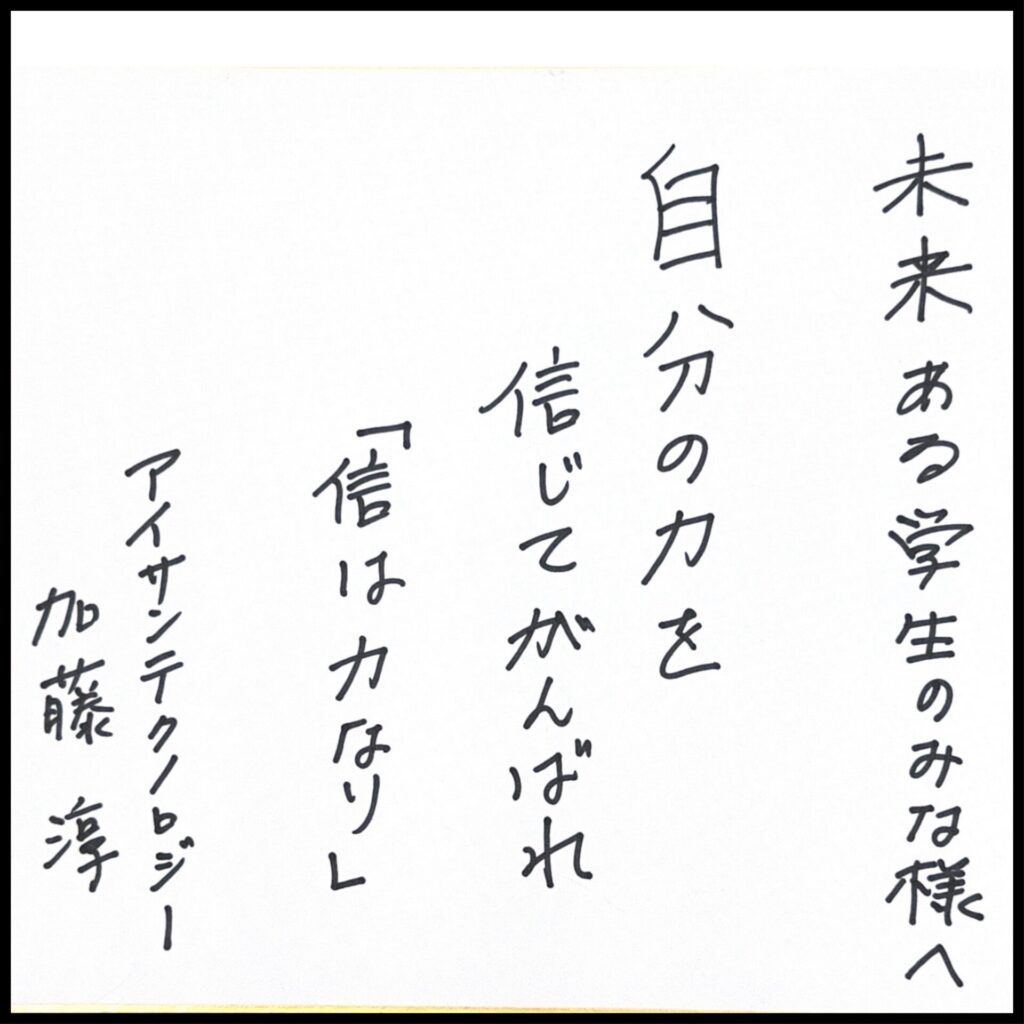 未来ある学生のみな様へ
自分の力を
信じてがんばれ
「信は力なり」
アイサンテクノロジー
加藤淳